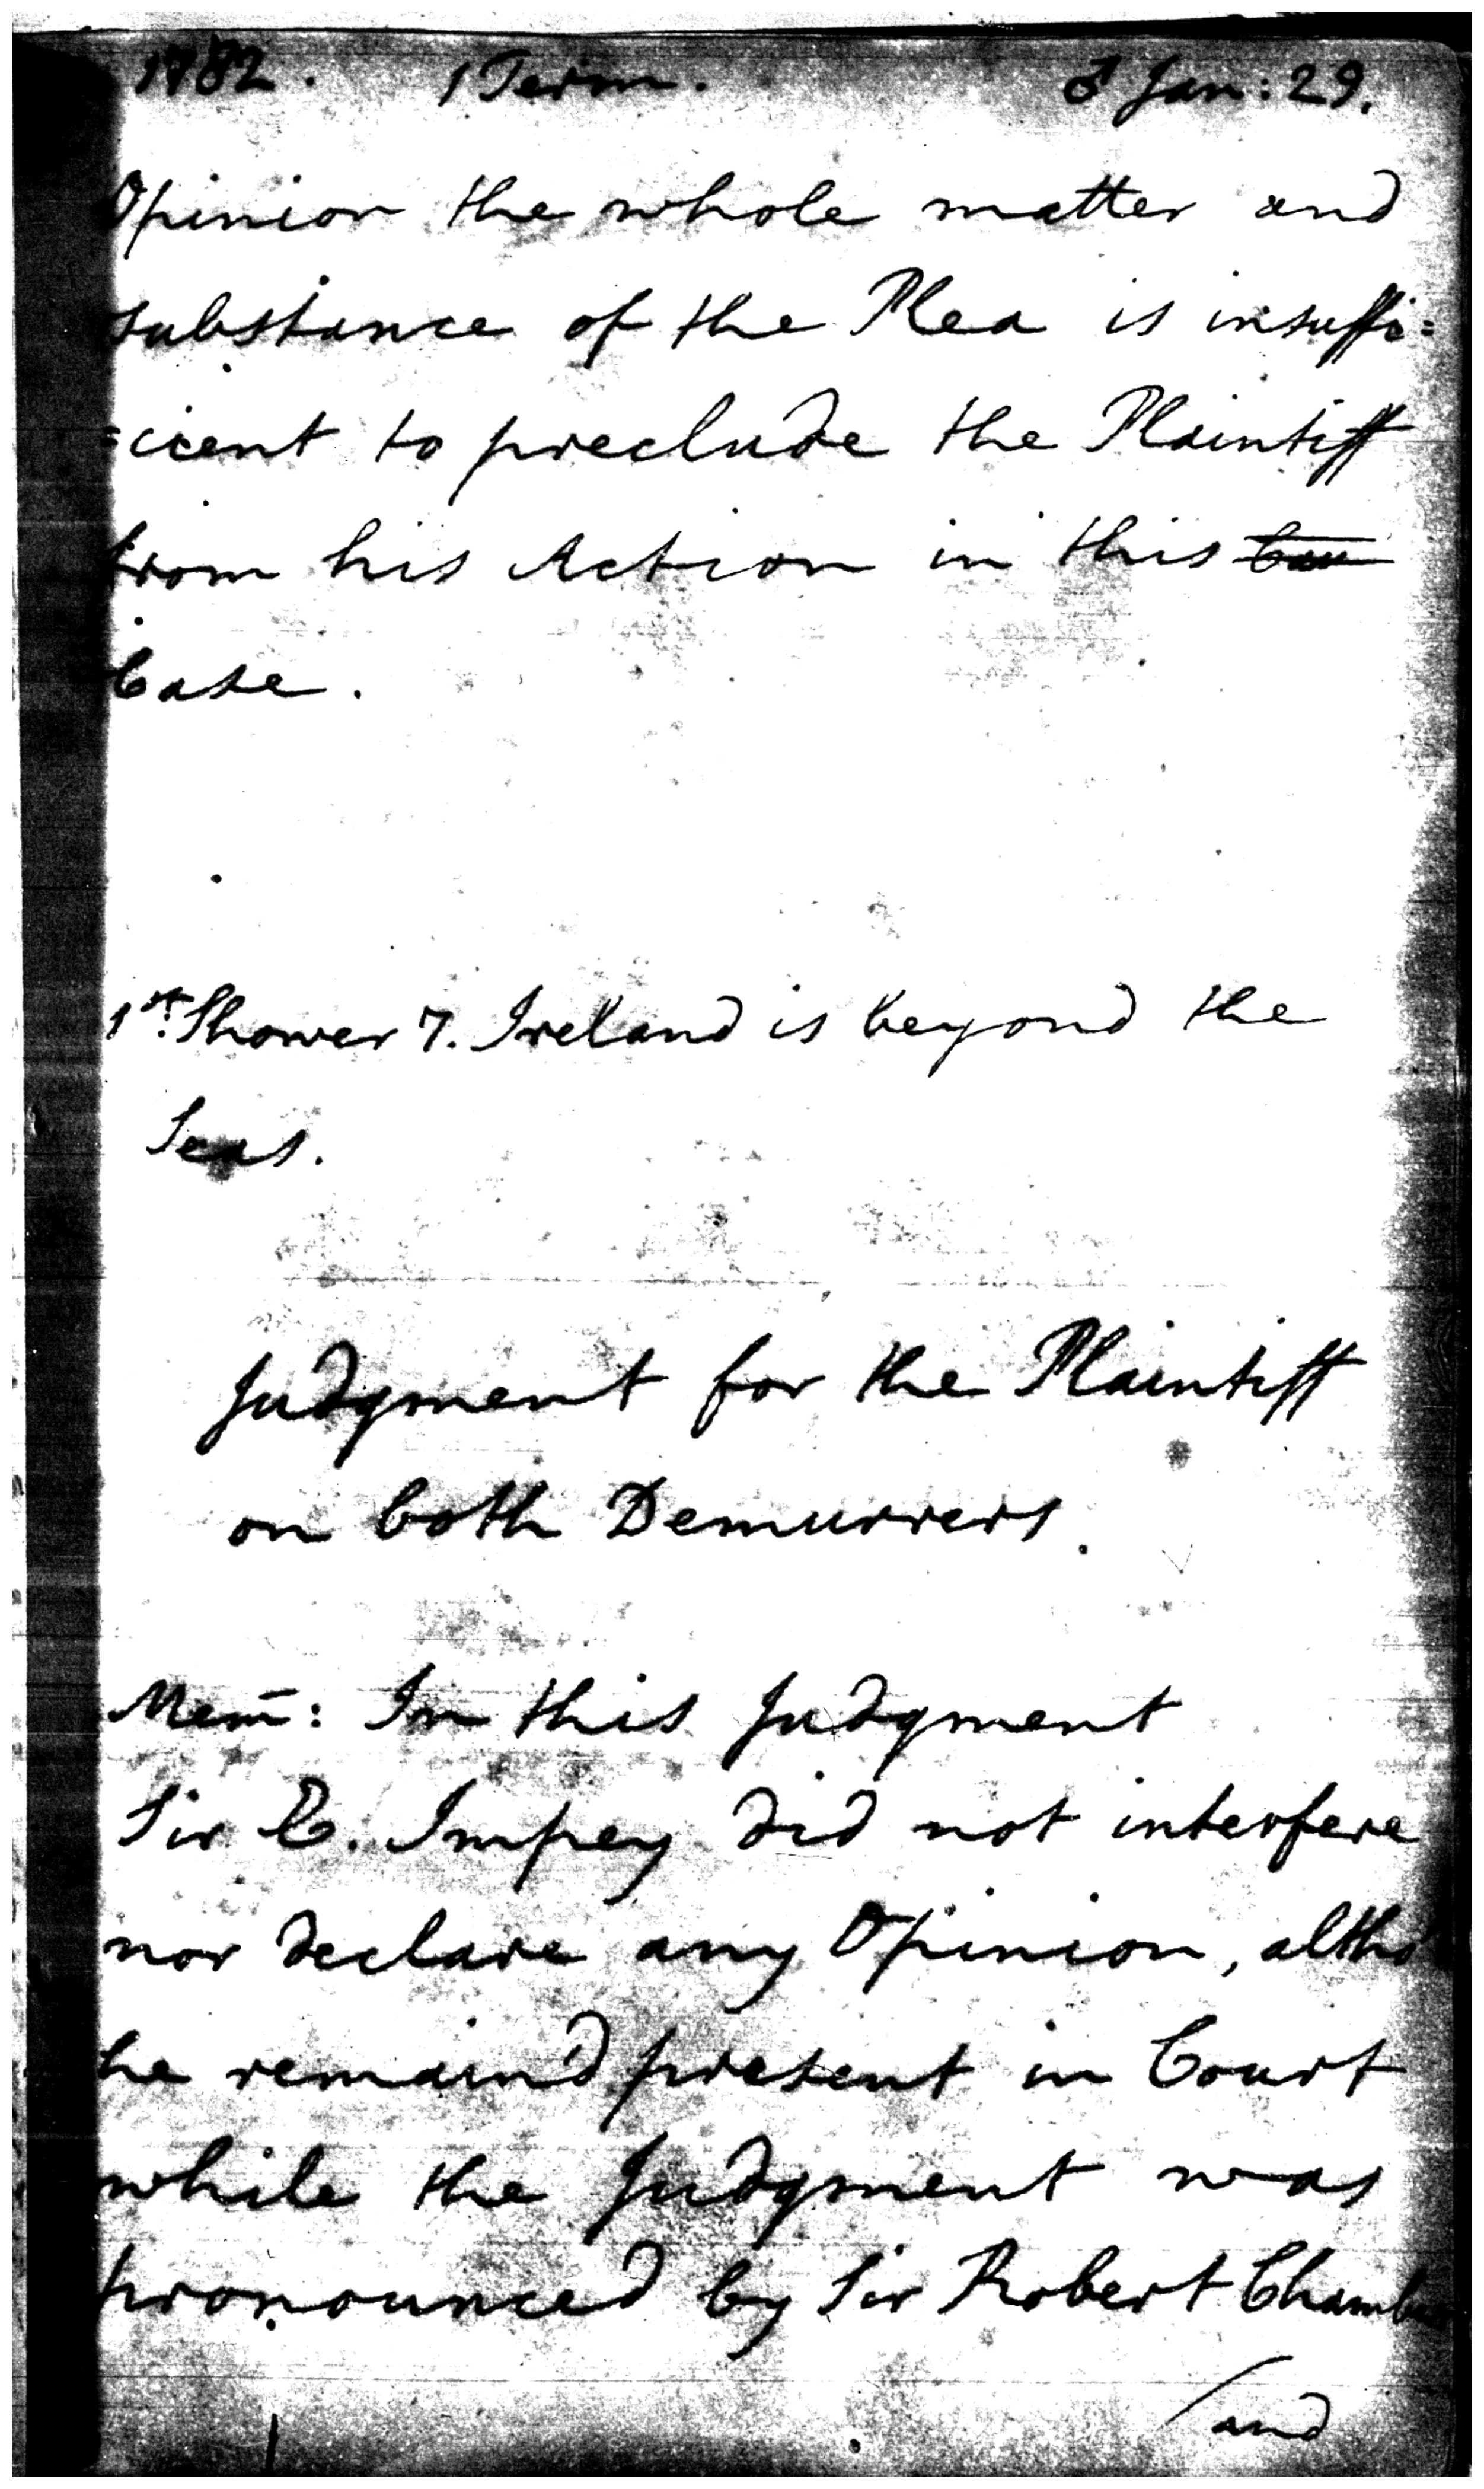 1782. 1 Term. ♂ Jan: 29.
Opinion the whole matter and
substance of the Plea is insuffi=
=cient to preclude the Plaintiff
from his Action in this
Case.
1st. Shower 7. Ireland is beyond the
Seas.
Judgment for the Plaintiff
on both Demurrers.
Mem̄: In this Judgment
Sir E. Impey did not interfere
nor declare any Opinion, altho'
he remain'd present in Court
while the Judgment was
pronounced by Sir Robert Chambers
/and